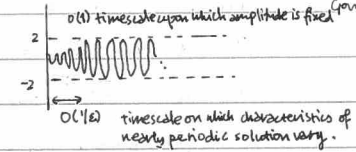 O(1) timescale upon which amplitude is fixed
2
-2
O(1/ε) timescale on which characteristics of
nearly periodic solution vary.